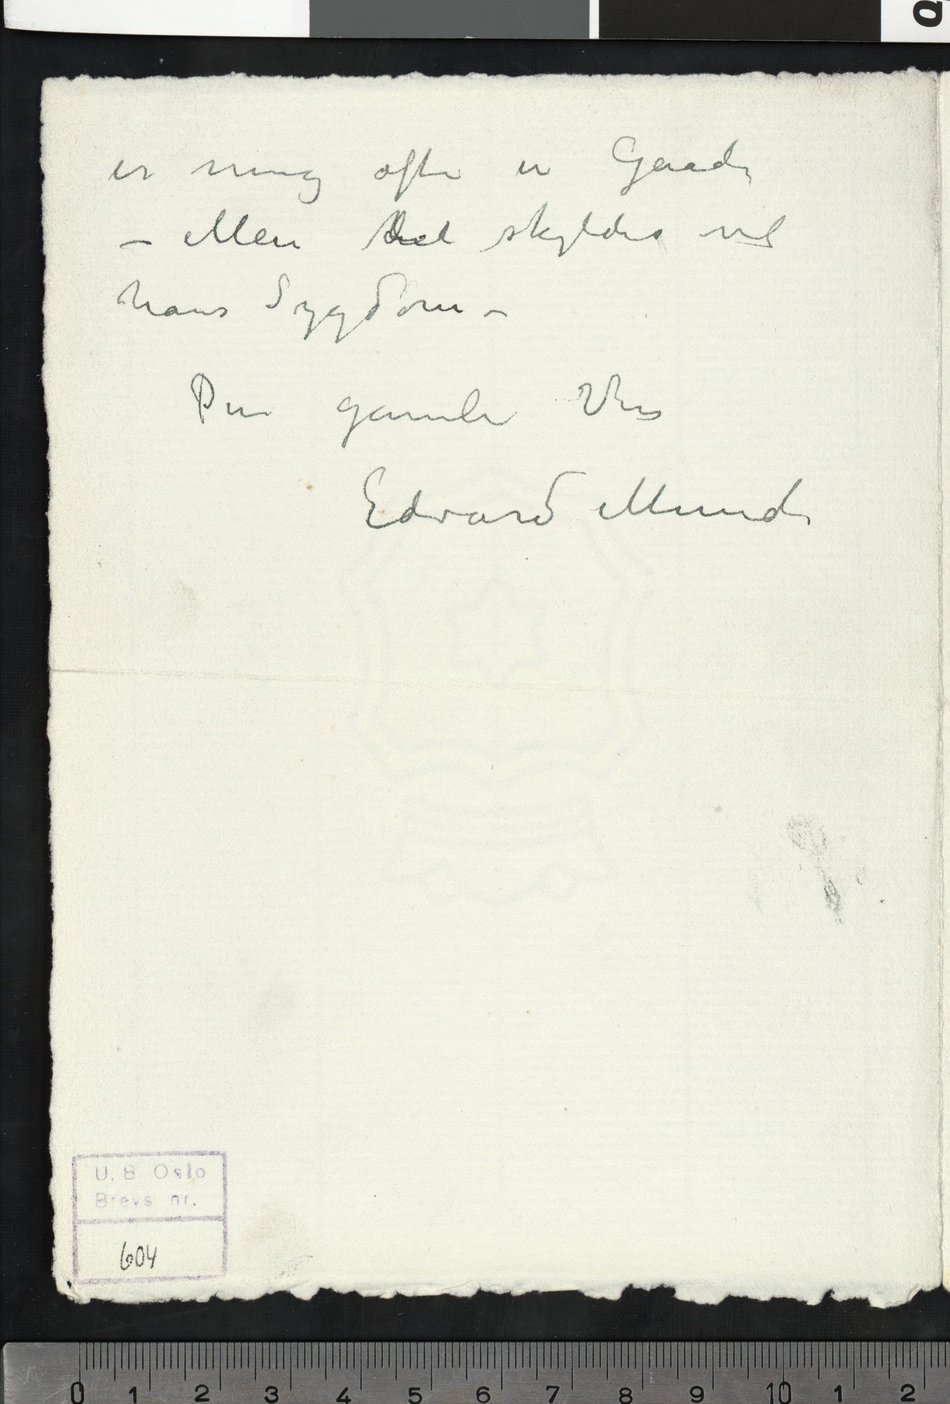 er mig ofte en Gaade
– Men det skyldes vel
hans Sygdom –
Din gamle Ven
Edvard Munch
U. B. Oslo
Brevs nr.
604
0 1 2 3 4 5 6 7 8 9 10 1 2